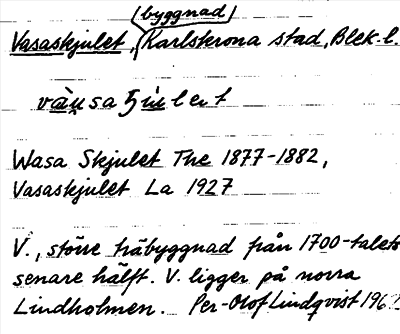 (byggnad)
Vasaskjulet, Karlskrona stad, Blek. l.
Wasa Skjulet The 1877-1882,
Vasaskjulet La 1927
V., större träbyggnad från 1700-talets
senare hälft. V. ligger på norra
Lindholmen. Per-Olof Lindqvist